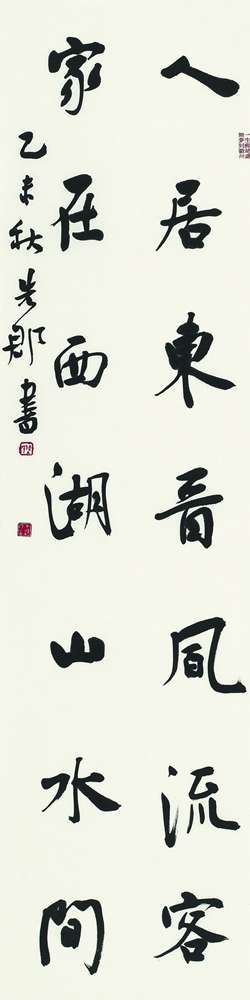 人居東晋風流客
家在西湖山水間
乙未秋
書